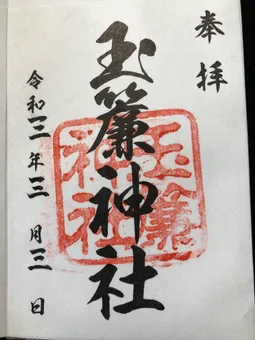 奉拝
玉簾神社
玉簾神社
令和三年三月三日